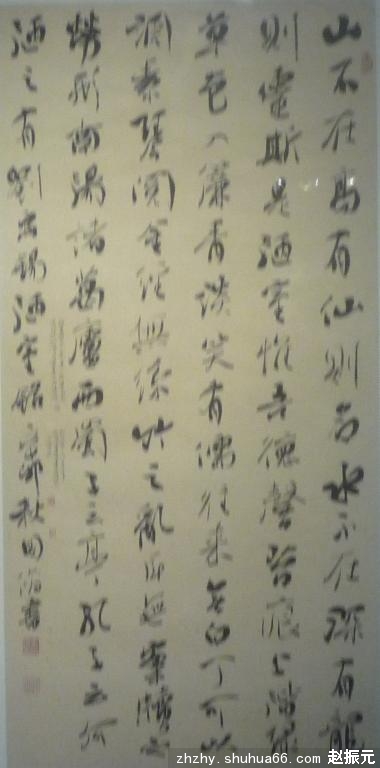 山不在高有仙則名水不在深有龍
則靈斯是陋室惟吾德馨苔痕上階綠
草色入簾青談笑有儒往来無白丁可以
調素琴閱金經無絲竹之亂耳無案牘之
勞形南陽諸葛廬西蜀子云亭孔子云何
陋之有劉禹錫陋室銘 秋田 書
zhzhy.shuhua66.com 赵振元